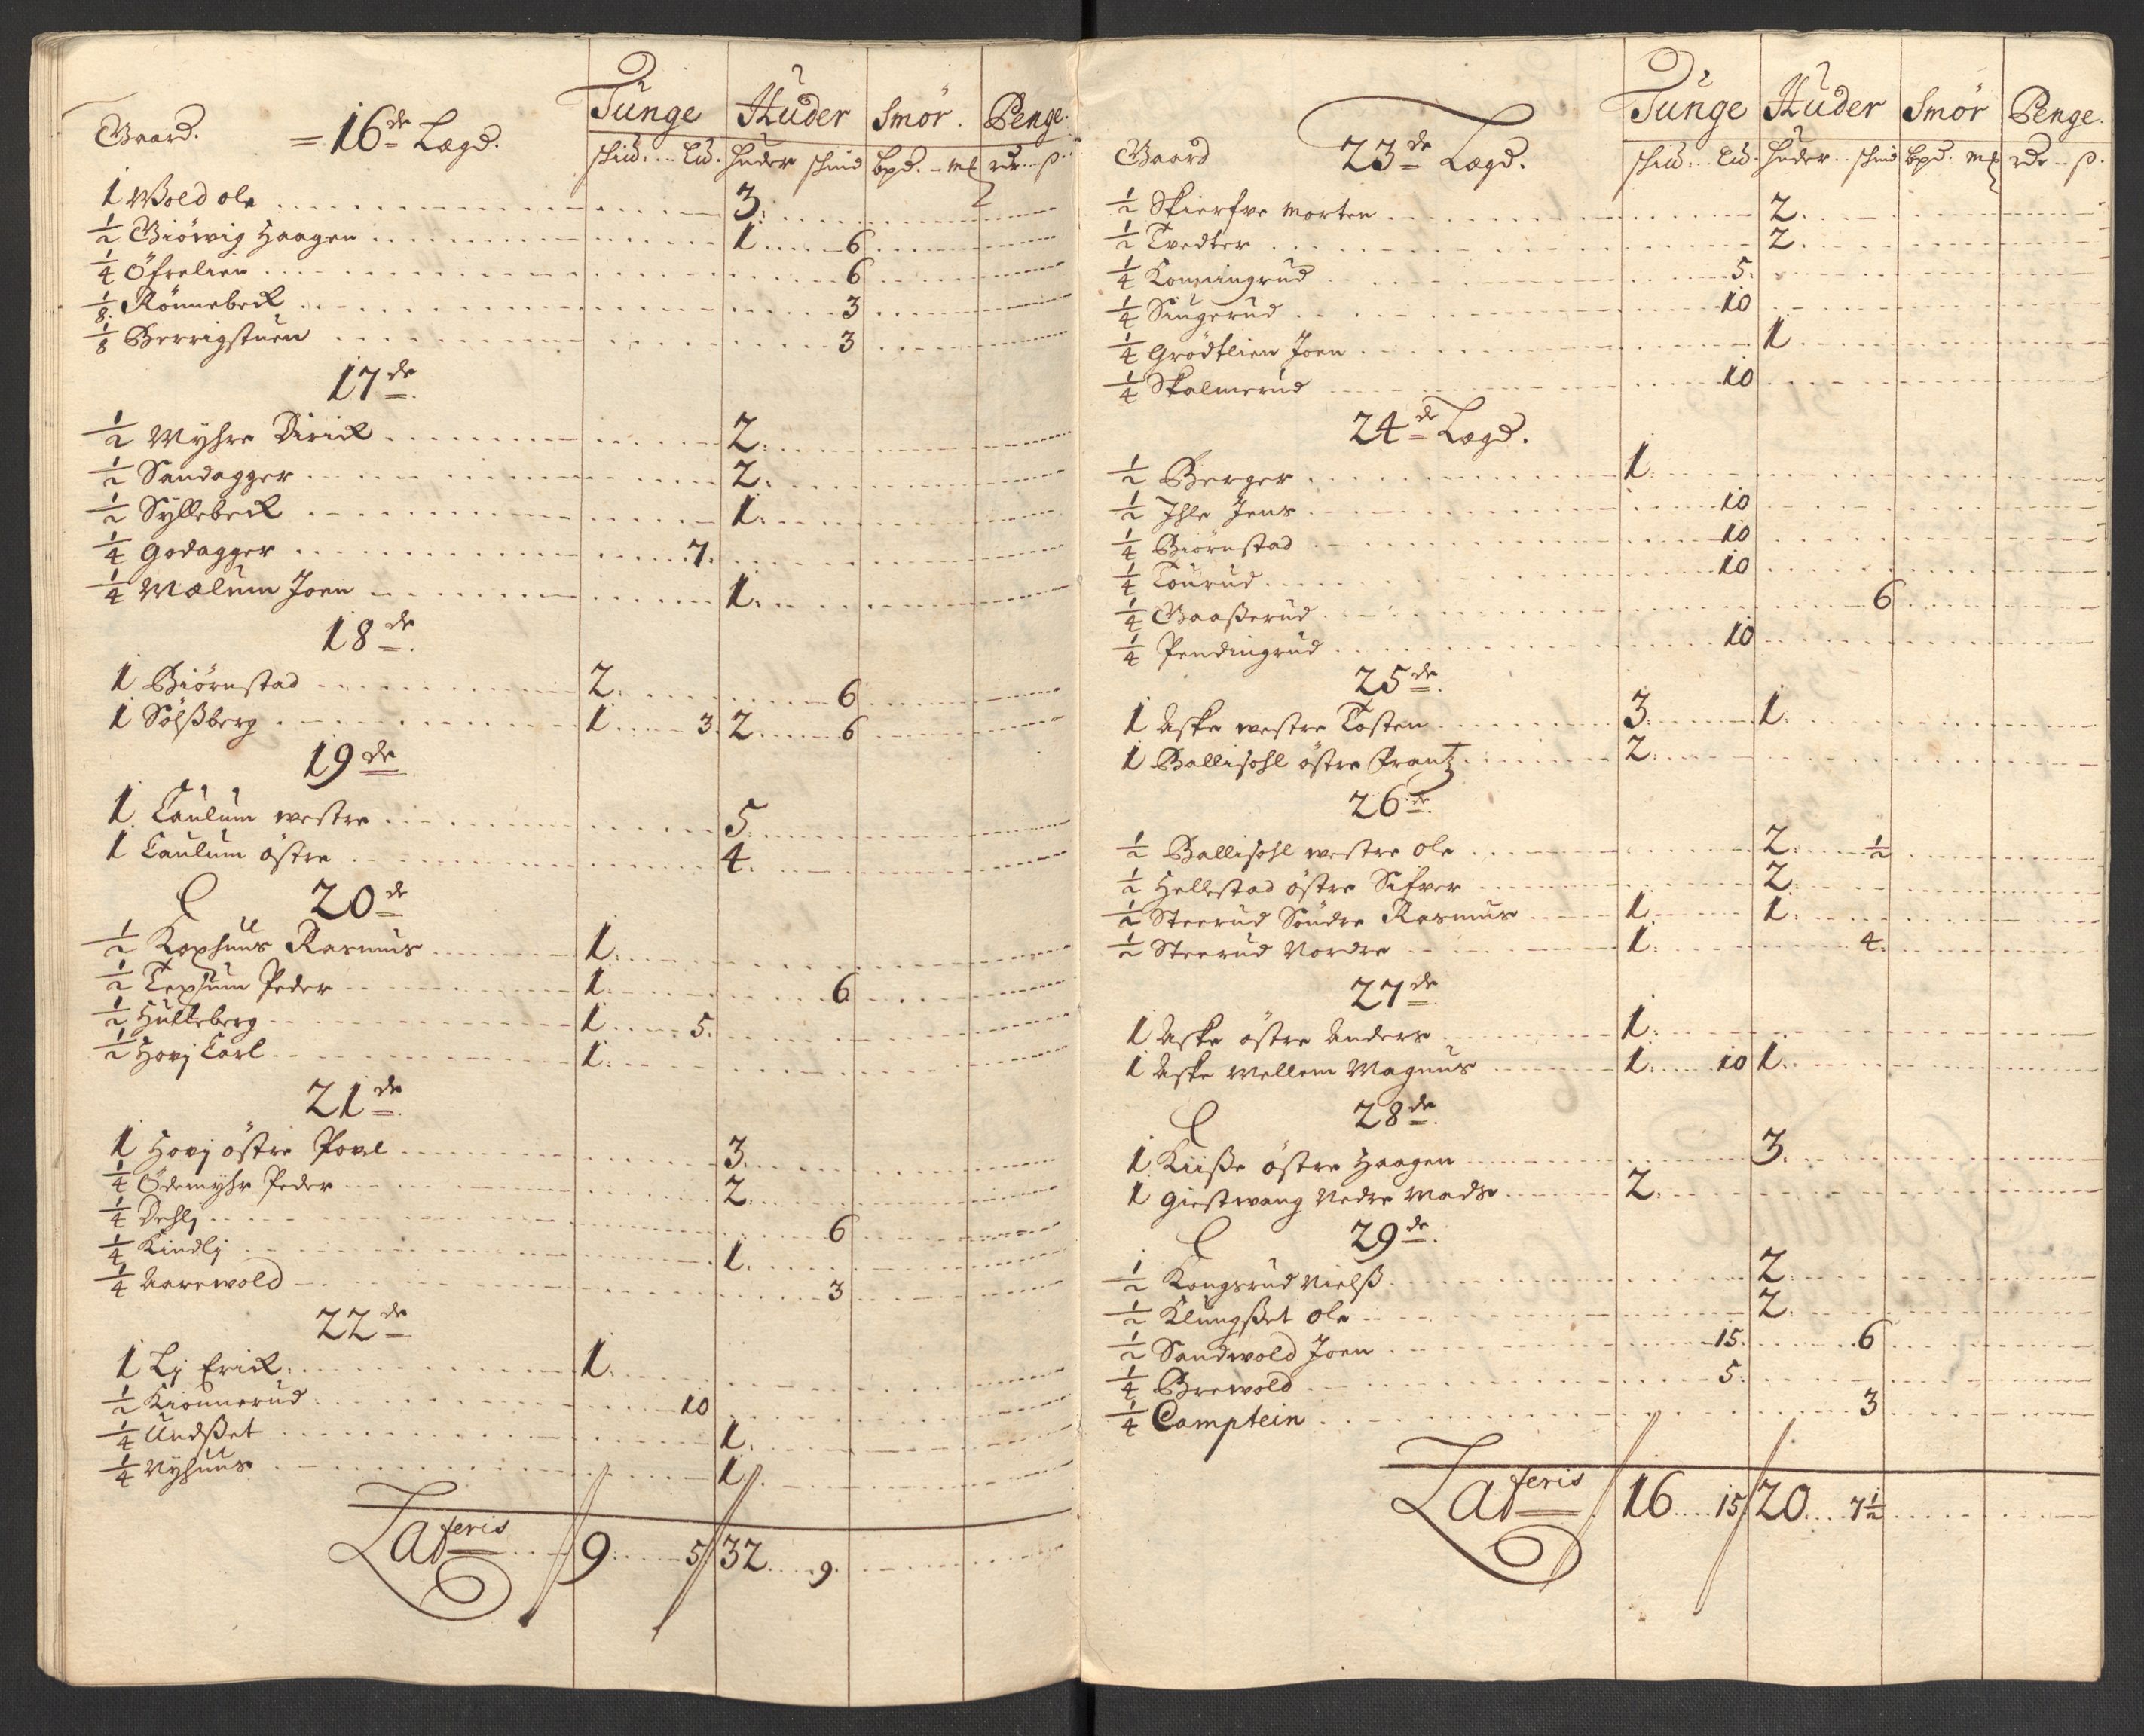 Gaard. = 16de Lægd. Tunge Huder Smör. Penge.
schid: .. Lid. huder schind bpd. - mk rdr .. ß.
1 Wold ole 3.
1/2 Giöwig Haagen 1. 6
1/4 Öfrelien 6
1/8 Rönnebeck 3
1/8 Berrigstuen 3
17de
1/2 Myhre Dirick 2.
1/2 Sandagger 2.
1/2 Syllebeck 1.
1/4 Godagger 7.
1/4 Mælum Joen 1.
18de
1 Biörnstad 2. 6
1 Sölßberg 1. 3. 2. 6
19de
1 Taulum westre 5.
1 Taulum östre 4.
20de
1/2 Kophuus Rasmus 1.
1/2 Tephum Peder 1. 6
1/2 Hulleberg 1. 5.
1/2 Hovj Carl 1.
21de
1 Hovj östre Povel 3.
1/4 Ödemyhr Peder 2.
1/4 Dehlj 6
1/4 Kindlj 1.
1/4 Aarewold 3
22de
1 Lj Erick 1.
1/2 Kionnerud 10
1/4 Undßet 1.
1/4 Nyhuus 1.
Lateris 9. 5 32. 9.
Gaard 23de Lægd. Tunge Huder Smör Penge.
schid: .. Lid. huder .. schind bpd. mk rdr .. ß.
1/2 Skierfve Morten 2.
1/2 Tvedter 2.
1/4 Konningrud 5.
1/4 Siugerud 10
1/4 Grödtlien Joen 1.
1/4 Skalmerud 10
24de Lægd.
1/2 Berger 1.
1/2 Ihle Jens 10
1/4 Biörnstad 10
1/4 Tourud 10
1/4 Gaaßerud 6
1/4 Pendingrud 10
25de
1 Aske westre Tosten 3. 1.
1 Ballishohl östre Frantz 2.
26de
1/2 Ballishohl westre ole 2. 1/2
1/2 Hellestad östre Sifver 2.
1/2 Steerud Söndre Rasmus 1. 1.
1/2 Steerud Nordre 1. 4.
27de
1 Aske östre Anders 1.
1 Aske Mellem Magnus 1. 10 1.
28de
1 Kiiße östre Haagen 3.
1 Giestwang Nedre Mads 2.
29de
1/2 Kongsrud Nielß 2.
1/2 Klungßet ole 2.
1/2 Sandwold Joen 15. 6
1/4 Brewold 5.
1/4 Camptein 3
Lateris 16. 15 20. 7 1/2